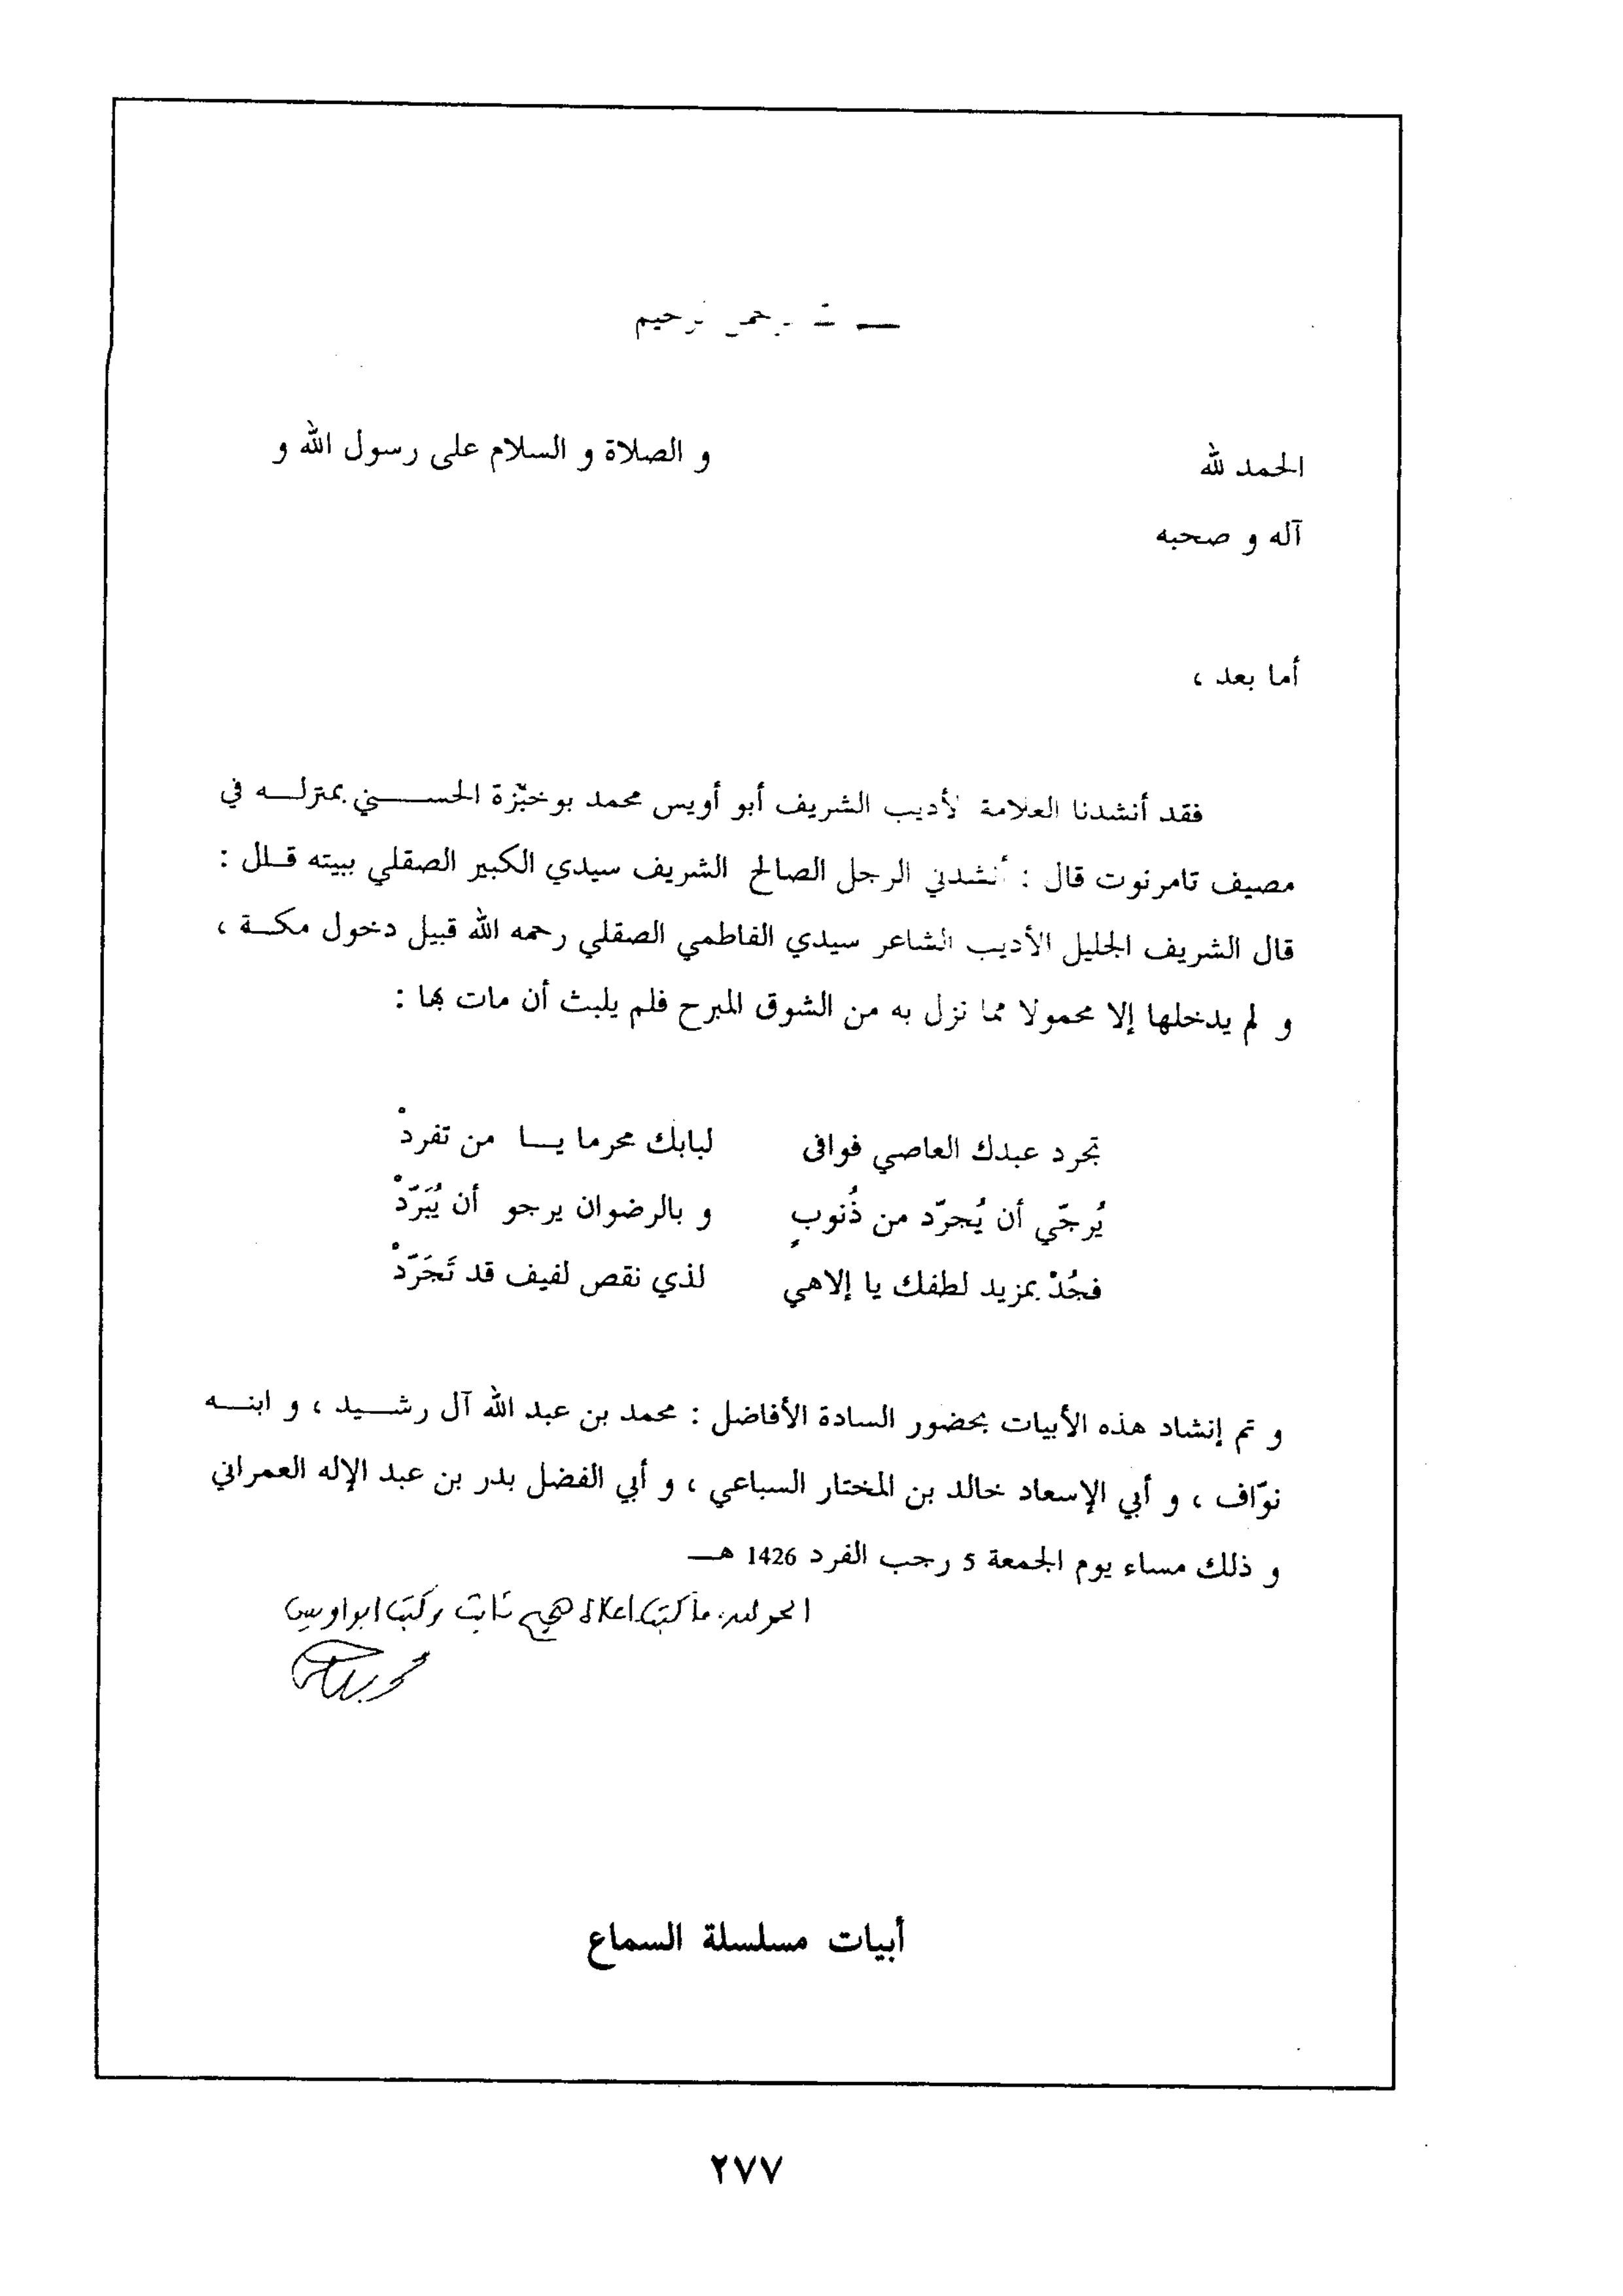 الحمد لله و الصلاة و السلام على رسول الله و
آله و صحبه
أما بعد ،
فقد أنشدنا العلامة الأديب الشريف أبو أويس محمد بوخبّزة الحســـني بمتزلـــه في
مصيف تامرنوت قال : أنشدني الرجل الصالح الشريف سيدي الكبير الصقلي ببيته قـلل :
قال الشريف الجليل الأديب الشاعر سيدي الفاطمي الصقلي رحمه الله قبيل دخول مكـــة ،
و لم يدخلها إلا محمولا مما نزل به من الشوق المبرح فلم يلبث أن مات بها :
تجرد عبدك العاصي فوافى لبابك محرما يـــا من تفردْ
يُرجّي أن يُجرّد من ذُنوبٍ و بالرضوان يرجو أن يُبَرّدْ
فجُدْ بمزيد لطفك يا إلاهي لذي نقص لفيف قد تَجَرّدْ
و تم إنشاد هذه الأبيات بحضور السادة الأفاضل : محمد بن عبد الله آل رشـــيد ، و ابنـــه
نوّاف ، و أبي الإسعاد خالد بن المختار السباعي ، و أبي الفضل بدر بن عبد الإله العمراني
و ذلك مساء يوم الجمعة 5 رجب الفرد 1426 هـــ
الحمد لله ما كتب أعلاه صحيح ثابت وكتب أبو أويس
أبيات مسلسلة السماع
٢٧٧